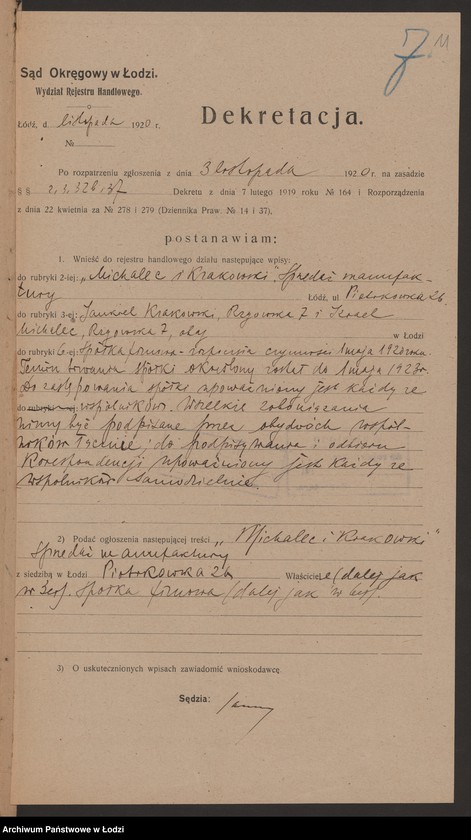 7 11
Sąd Okręgowy w Łodzi.
Wydział Rejestru Handlowego.
Dekretacja.
Łódź, d. listopada 1920 r.
№
Po rozpatrzeniu zgłoszenia z dnia 3 listopada 1920 r. na zasadzie
§ § 2, 3, 32 i 37 Dekretu z dnia 7 lutego 1919 roku № 164 i Rozporządzenia
z dnia 22 kwietnia za № 278 i 279 (Dziennika Praw. № 14 i 37),
postanawiam:
1. Wnieść do rejestru handlowego działu następujące wpisy:
do rubryki 2-iej: „Michalec i Krakowski". Sprzedaż manufak-
tury Łódź, ul Piotrkowska 26
do rubryki 3-ej: Jankiel Krakowski, Rzgowska 7 i Izrael
Michelec, Rzgowska 7, obaj w Łodzi
do rubryki 6-ej: Spółka firmowa rozpoczęła czynności 1 maja 1920 roku.
Termin trwania spółki określony został do 1 maja 1923 r.
Do zastępowania spółki upoważniony jest każdy ze
do rubryki wspólników. Wszelkie zobowiązania
winny być podpisane przez obydwóch wspól-
ników łącznie; do podpisywania i odbioru
korespondencji upoważniony jest każdy ze
wspólników samodzielnie.
2) Podać ogłoszenia następującej treści „Michalec i Krakowski"
Sprzedaż manufaktury
z siedzibą w Łodzi Piotrkowska 26 Właściciele (dalej jak
w 3 er). Spółka firmowa (dalej jak w 6 er).
3) O uskutecznionych wpisach zawiadomić wnioskodawcę
Sędzia:
Archiwum Państwowe w Łodzi